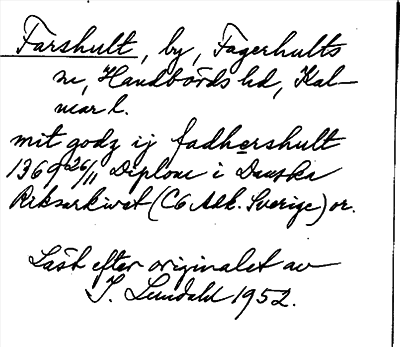 Farshult, by, Fagerhults
sn, Handbörds hd, Kal-
mar l.
mit godz ij fadhershult
1369 26/11 Diplom i Danska
Riksarkivet (C6 Adk. Sverige) or.
Läst efter originalet av
I. Lundahl 1952.